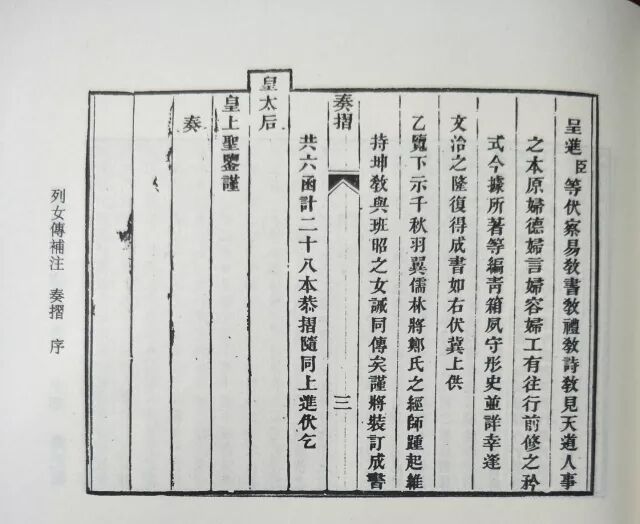 呈進臣等伏察易敎書敎禮敎詩敎見天道人事
之本原婦德婦言婦容婦工有往行前修之矜
式今據所著等編靑箱夙守彤史並詳幸逢
文治之隆復得成書如右伏冀上供
乙覽下示千秋羽翼儒林將鄭氏之經師踵起維
持坤敎與班昭之女誡同傳矣謹將裝訂成書
奏摺
三
共六函計二十八本恭摺隨同上進伏乞
皇太后
皇上聖鑒謹
奏
列女傳補注 奏摺 序